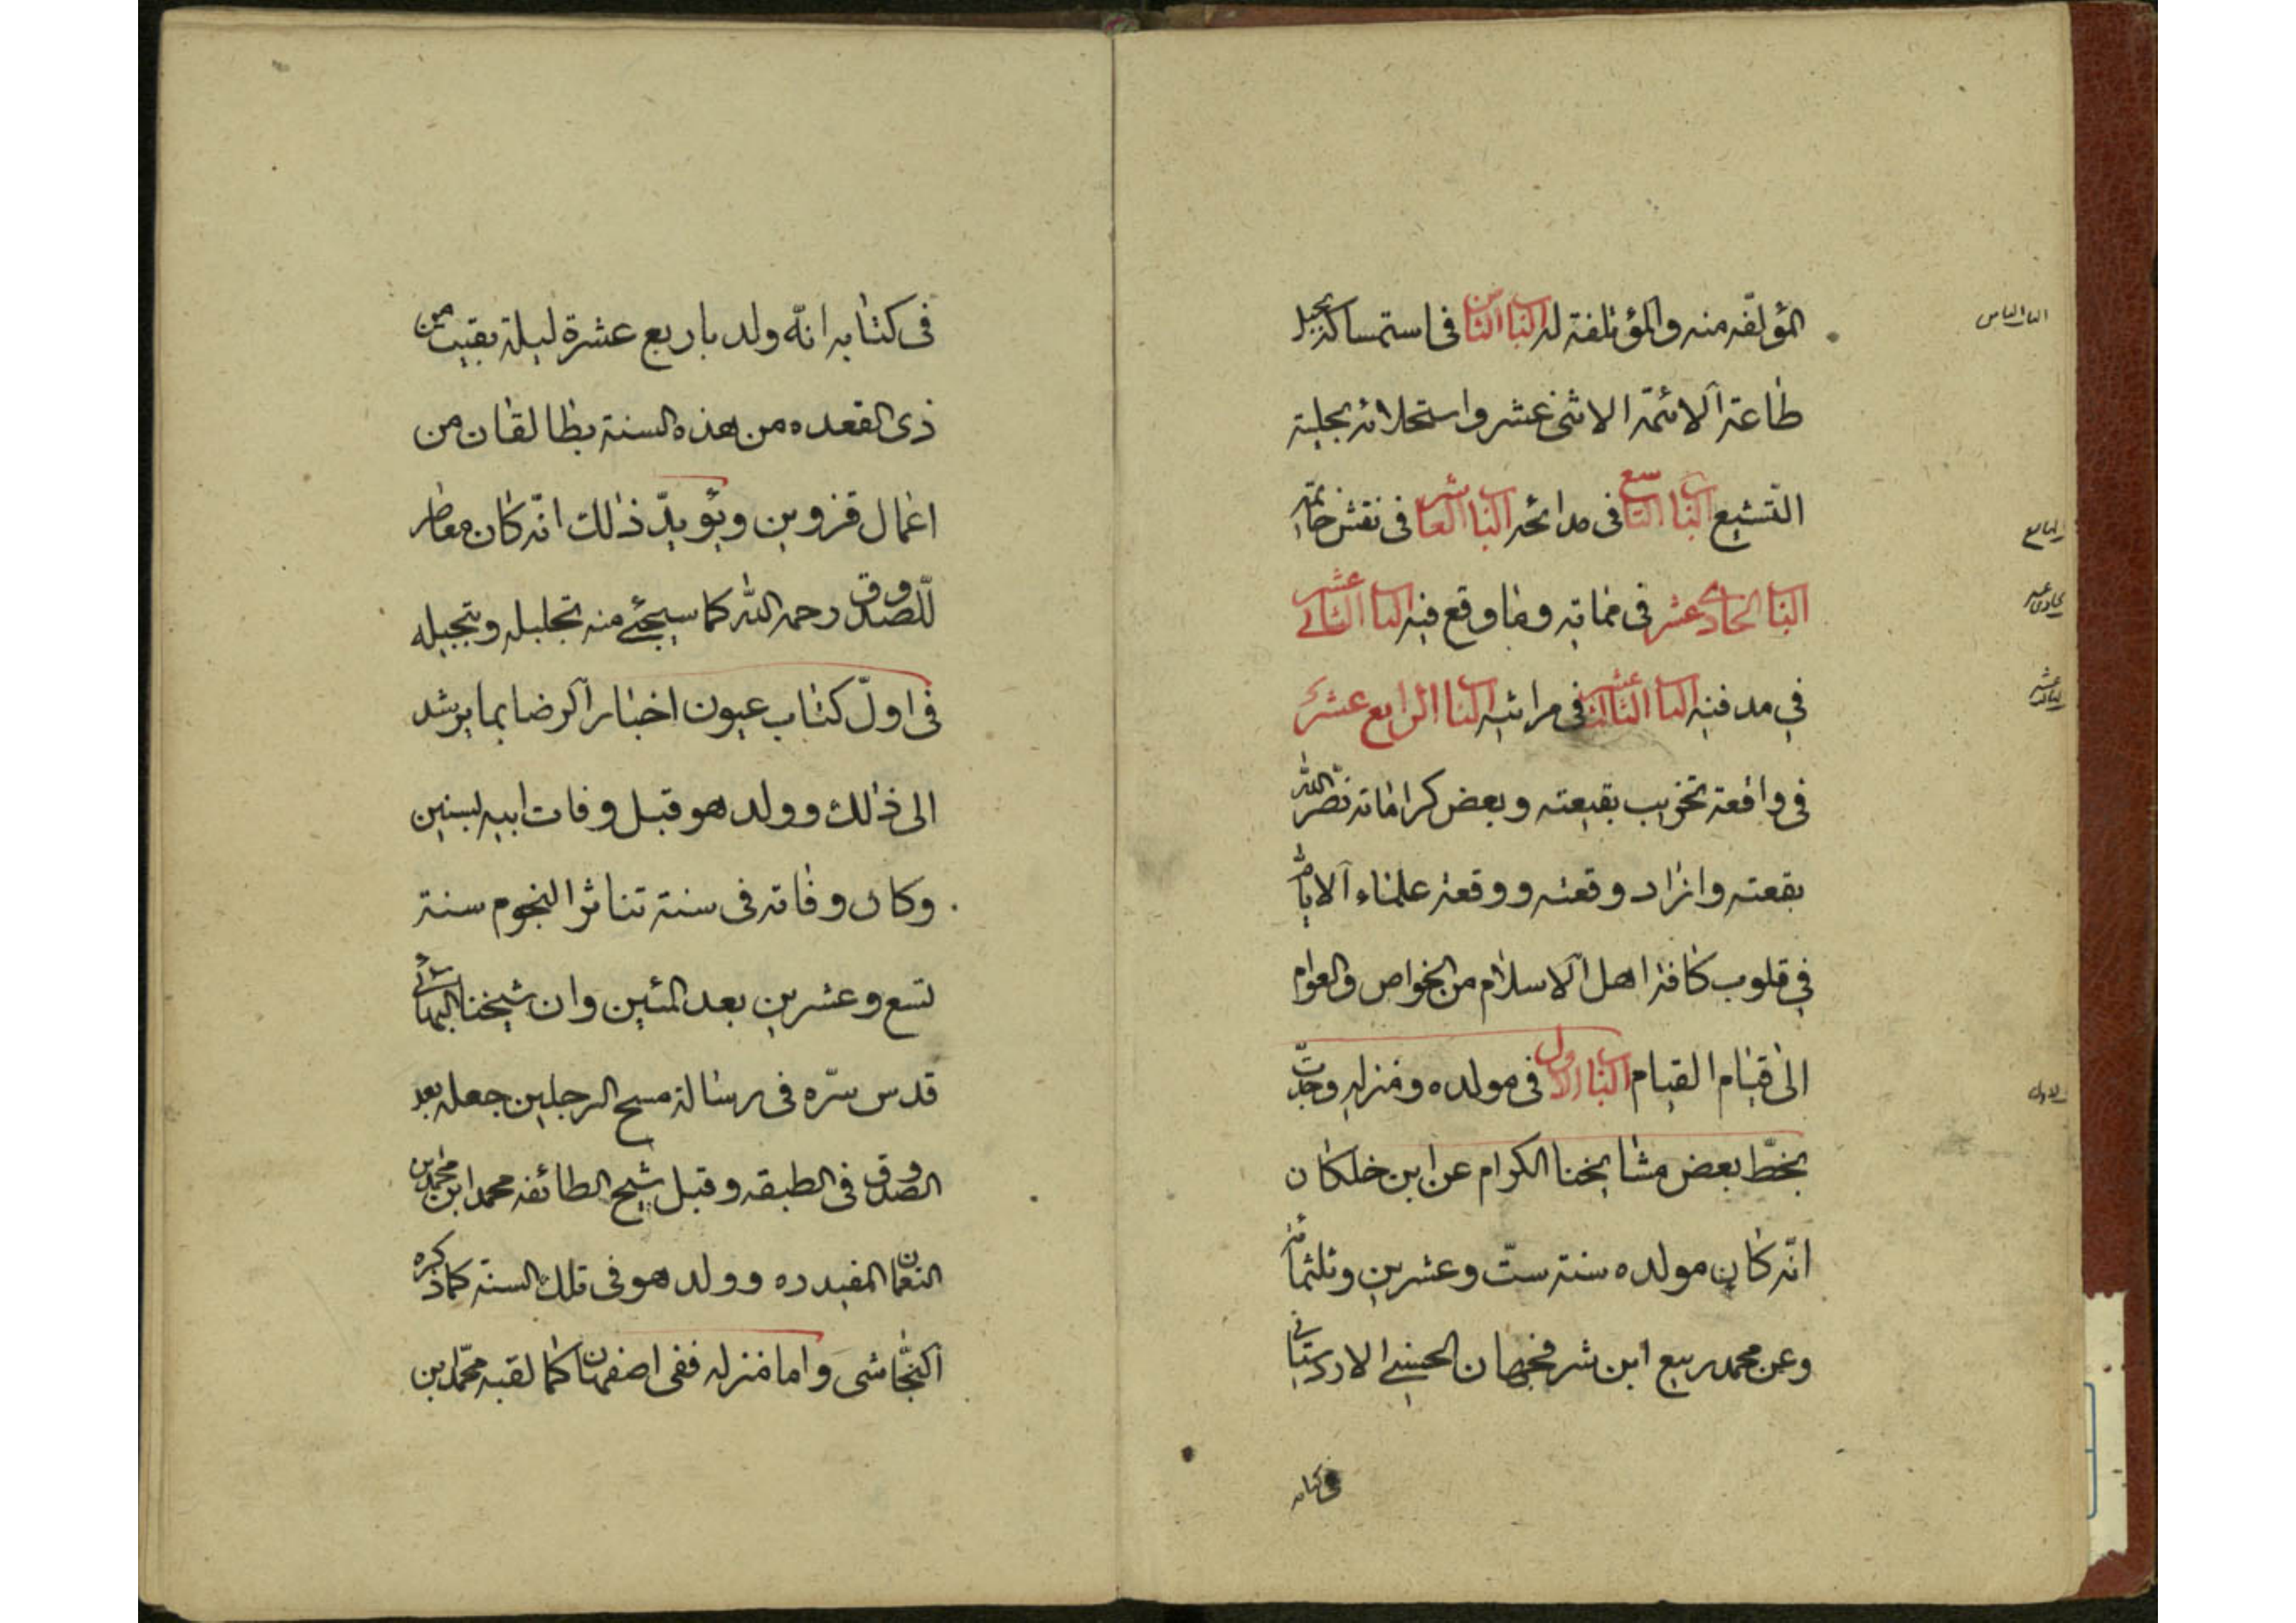 المؤلّفه منه والمؤتلفة له الباب الثامن فی استمساکه بحبل
طاعة الائمّة الاثنی عشر واستحلائه بحلیة
التّشیع الباب التاسع فی مدائحه الباب العاشر فی نقش خاتمه
الباب الحادی عشر فی مماته وما وقع فیه الباب الثانی عشر
فی مدفنه الباب الثالث عشر فی مراثیه الباب الرابع عشر
فی واقعة تخریب بقیعته وبعض کراماته نضّر الله
بقعته وازاد وقعته ووقعة علماء الایام
فی قلوب کافة اهل الاسلام من الخواص والعوام
الی قیام القیام الباب الاول فی مولده ومنزله وجدتّ
بخطّ بعض مشایخنا الکرام عن ابن خلکان
انّه کان مولده سنة ستّ وعشرین وثلثمائة
وعن محمد ربیع ابن شرفجهان الحسینی الاردستانی
فی کتابه
الباب الثامن
التاسع
الحادی عشر
الثالث عشر
الاول
فی کتابه انّه ولد باربع عشرة لیلة بقیت من
ذی القعده من هذه السنة بطالقان من
اعمال قزوین ویؤیدّ ذالک انّه کان معاصر
للّصدوق رحمه الله کما سیجئ منه تجلیله وتبجیله
فی اولّ کتاب عیون اخبار الرضا بما یرشد
الی ذالک وولد هو قبل وفات ابیه بسنین
وکان وفاته فی سنة تناثر النجوم سنة
تسع وعشرین بعد المئین وان شیخنا البهائی
قدس سرّه فی رسالة مسح الرجلین جعله بعد
الصدوق فی الطبقه وقبل شیخ الطائفه محمد ابن محمد بن
النعمان المفید ره وولد هو فی تلک السنّه کما ذکره
النجّاشی واما منزله ففی اصفهان کما لقبه محمّد بن